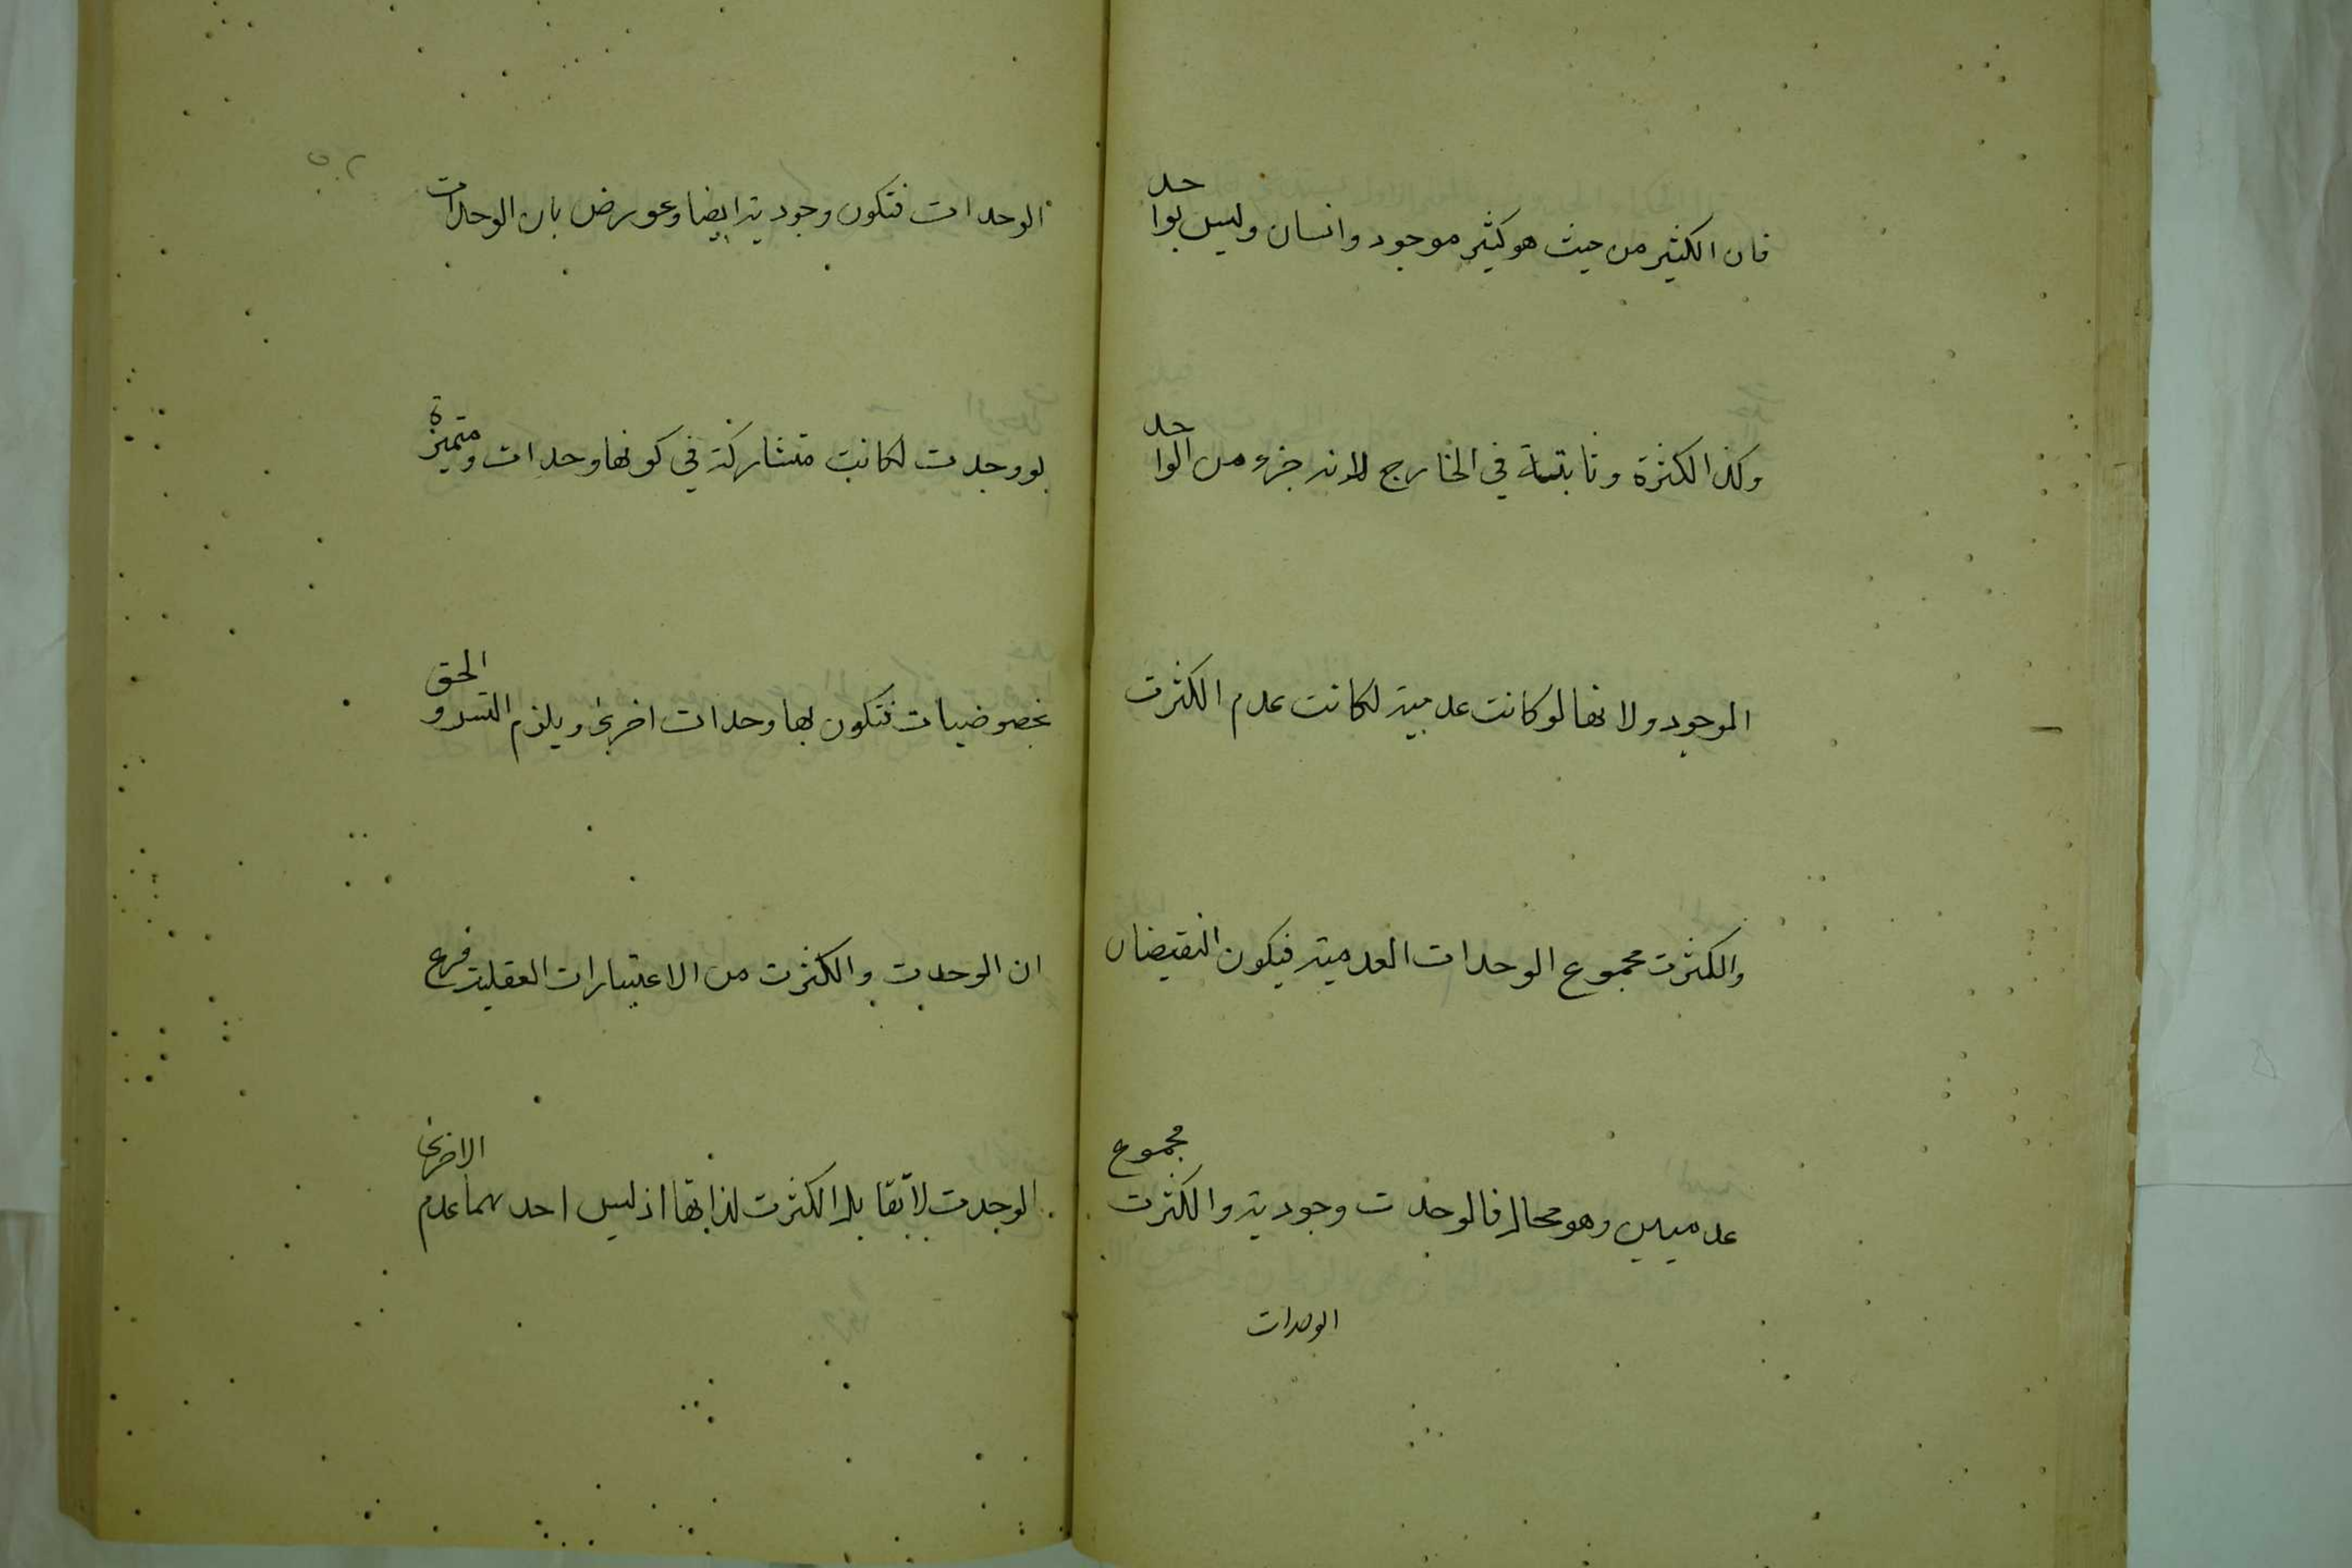 فان الكثير من حيث هو كثير موجود وانسان وليس بواحد
وكذا الكثرة وثابتة في الخارج لانه جزء من الواحد
الموجود ولانها لو كانت عدمية لكانت عدم الكثرت
والكثرت مجموع الوحدات العدمية فيكون النقيضان
عدميين وهو محال فالوحدت وجودية والكثرت مجموع
الوحدات
الوحدات فتكون وجودية ايضا وعورض بان الوحدات
لو وجدت لكانت متشاركة في كونها وحدات ومتميزة
بخصوصيات فتكون لها وحدات اخرى ويلزم التسه والحق
ان الوحدت والكثرت من الاعتبارات العقلية فرع
الوحدت لا تقابل الكثرت لذاتها اذ ليس احدهما عدم الاخرى